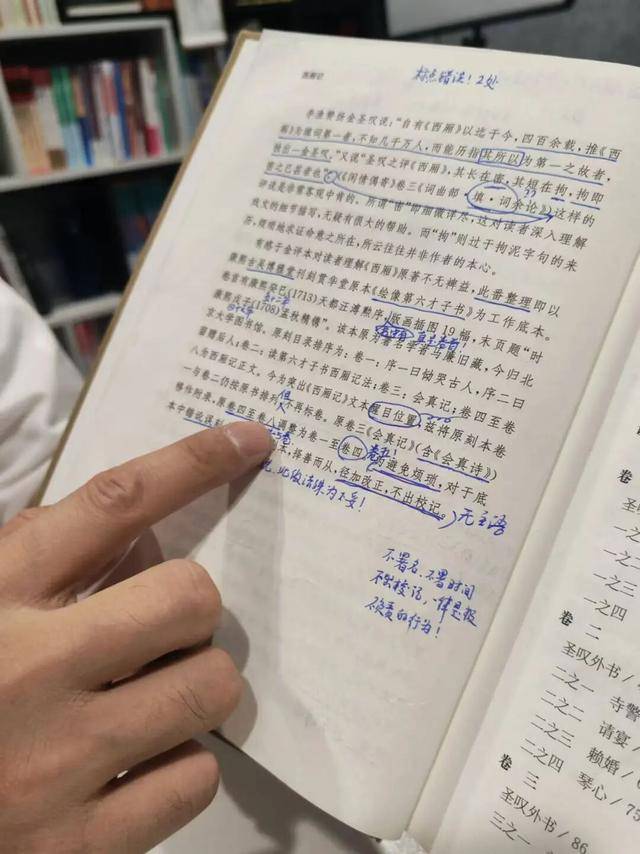 西厢记
标点错误!2处
李渔赞扬金圣叹说:“自有《西厢》以迄于今,四百余载,推《西
厢》为填词第一者,不知几千万人,而能历指其所以为第一之故者,
独出一金圣叹。”又说“圣叹之评《西厢》,其长在密,其短在拘,拘即
密之已甚者也”(《闲情偶寄》卷三《词曲部 填·词余论》),这样的
评说是非常客观中肯的。所谓“密”即细微详尽,这对读者深入理解
戏文的细节描写,无疑有很大的帮助。而“拘”则过于拘泥字句的来
历,琐琐地求证命卷之所在,所云往往并非作者的本心。
有感于金评本对读者理解《西厢》原著不无裨益,此番整理即以
康熙吉吴博雅堂刊刻贯华堂原本《绘像第六才子书》为工作底本。
卷首有康熙癸巳(1713)天都汪溥勳序,版画插图19幅,末页题“时
康熙戊子(1708)孟秋精镌”。该本原为著名学者马廉旧藏,今归北
京大学图书馆。原刻目录排序为:卷一:序一曰恸哭古人,序二曰
留赠后人;卷二:读第六才子书西厢记法;卷三:会真记;卷四至卷
八为西厢记正文。今为突出《西厢记》文本醒目位置,兹将原刻本卷
一今卷二仍按原书排列 不再标卷。原卷三《会真记》(含《会真诗》)
但
移作附录,原卷四至卷八调整为卷一至卷四 为避免烦琐,对于底
本中错讹误刻 本,择善而从,径加改正,不出校记。
无主语
此做法殊为不妥!
不署名,不署时间
不出校记,一律是极
不负责的行为!
卷
圣叹
一之
一之
一之
一之四
卷 二
圣叹外书/
二之一 寺警
二之二 请宴
二之三 赖婚/6
二之四 琴心/75
卷 三
圣叹外书/86
三之一